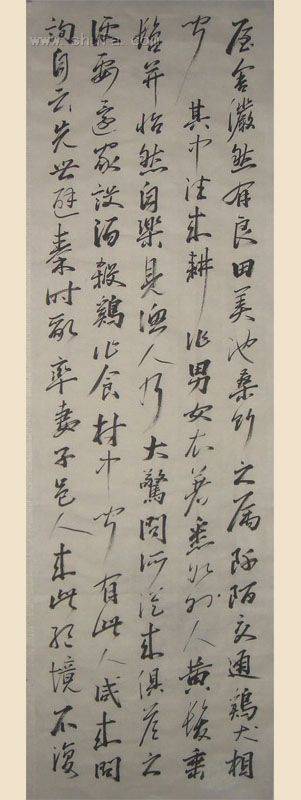 屋舍儼然有良田美池桑竹之屬阡陌交通鷄犬相
聞其中往來耕作男女衣著悉如外人黃髮垂
髫并怡然自樂見漁人乃大驚問所從來俱答之
便要還家設酒殺鷄作食村中聞有此人咸來問
訊自云先世避秦時亂率妻子邑人來此絕境不復